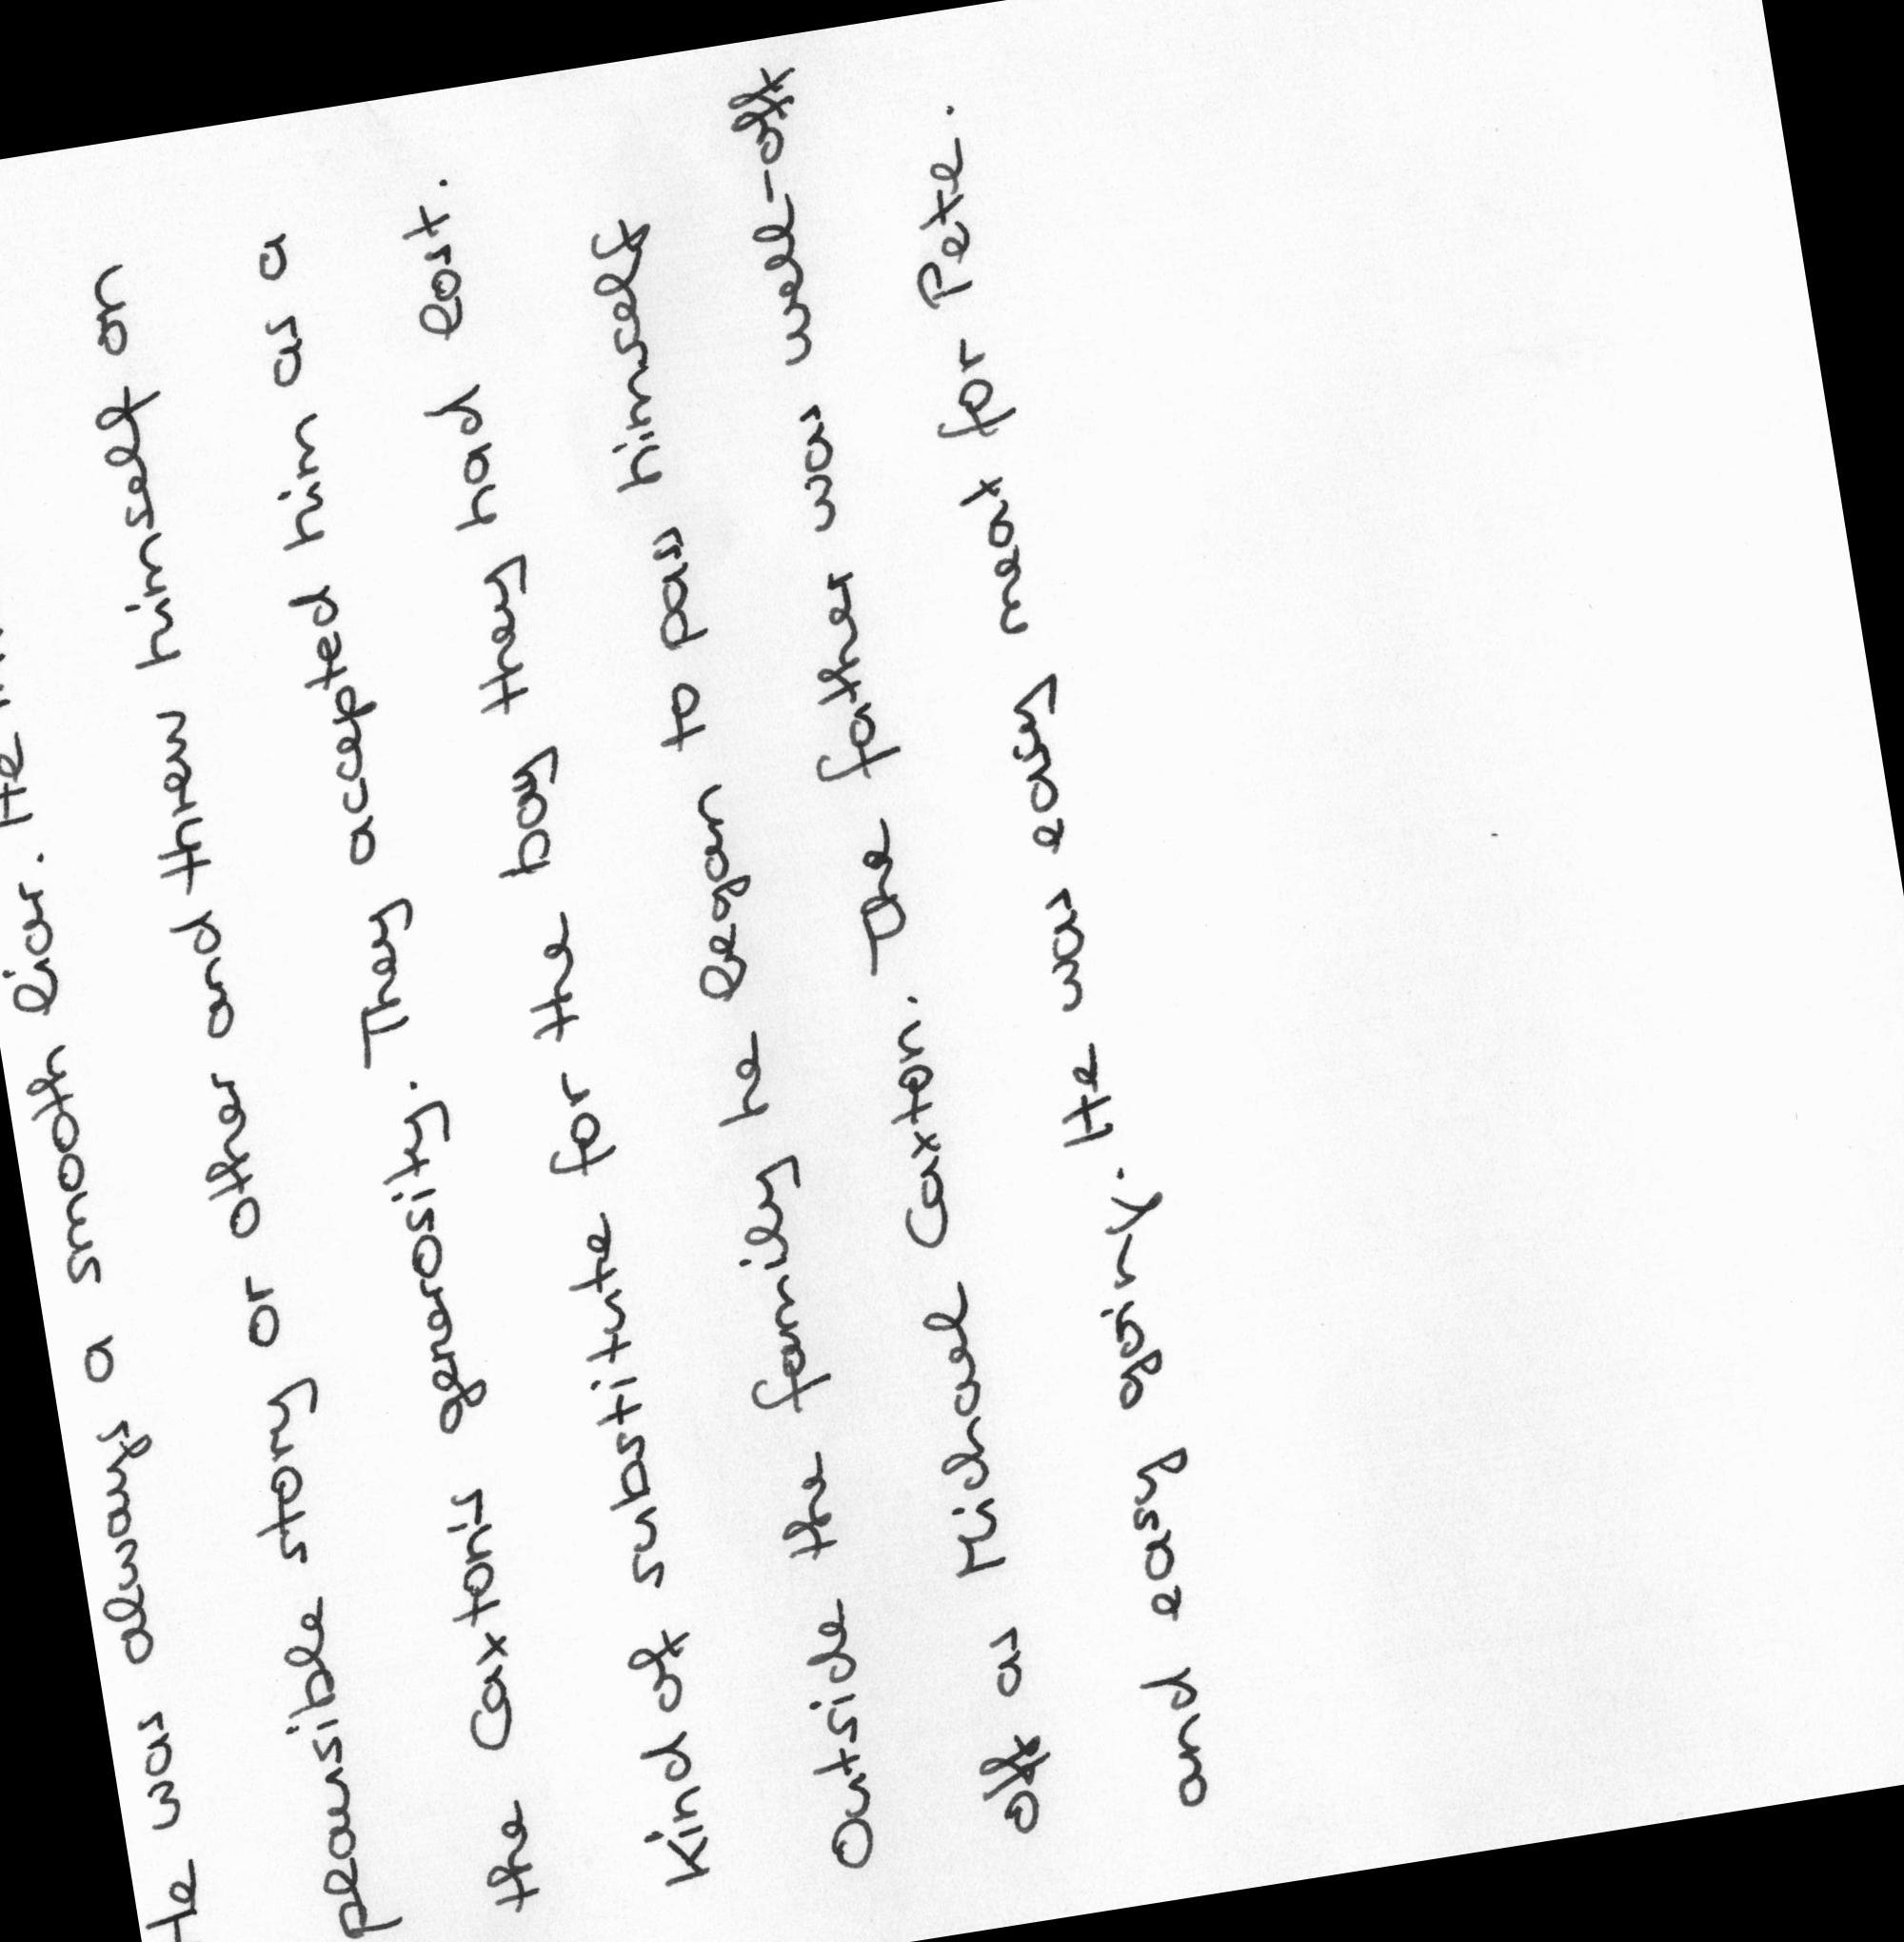 He was always a smooth liar. He
plausible story or other and threw himself on
the Caxton's generosity. They accepted him as a
kind of substitute for the boy they had lost.
Outside the family he began to pass himself
off as Michael Caxton. The father was well-off
and easy going. He was easy meat for Pete.